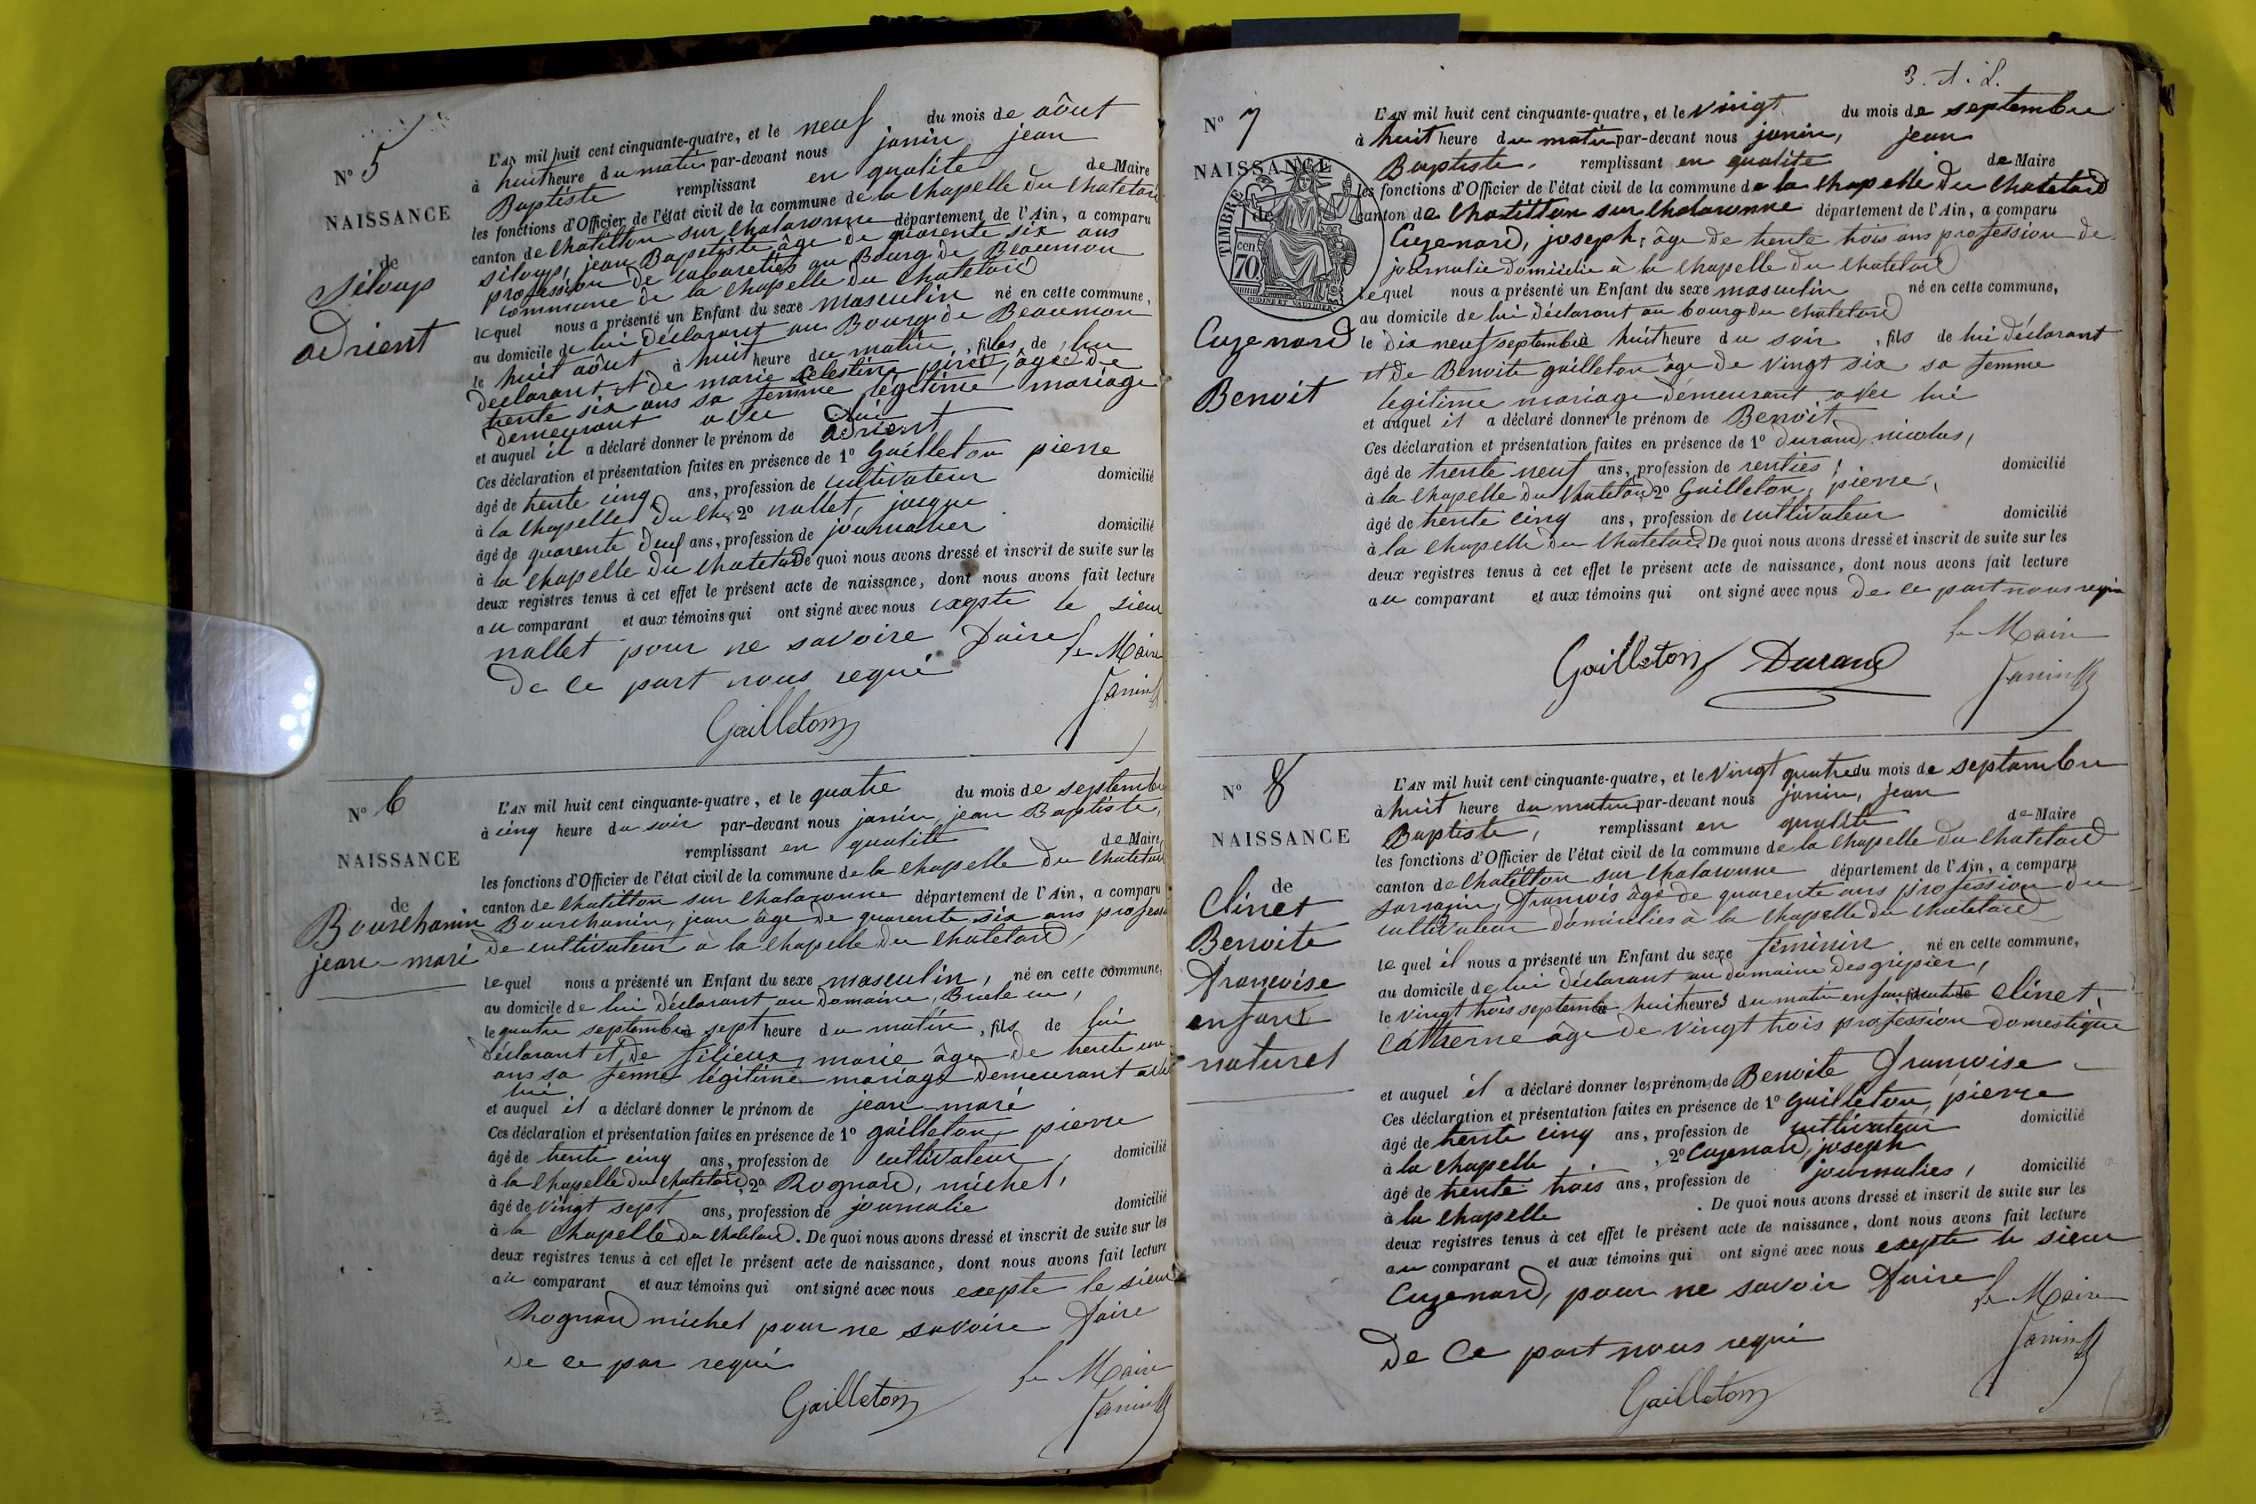 N° 5
NAISSANCE
de
Siloup
adrient
L'AN mil huit cent cinquante-quatre, et le neuf du mois de aôut
à huit heure du matin par-devant nous janin jean
Baptiste remplissant en qualité de Maire
les fonctions d'Officier de l'état civil de la commune de la Chapelle du Chatelard
canton de Chatillon sur Chalaronne département de l'Ain, a comparu
Siloup, jean Baptiste âge de quarente six ans
profession de cabaretier au Bourg de Beaumon
commune de la Chapelle du Chatelard
lequel nous a présenté un Enfant du sexe masculin né en cette commune,
au domicile de lui déclarant au Bourg de Beaumon
le huit aôut à huit heure du matin, fils de lui
déclarant et de marie Celestine âgée de
trente six ans sa femme légitime mariage
demeurant avec lui
et auquel il a déclaré donner le prénom de adrient
Ces déclaration et présentation faites en présence de 1° Gailleton pierre
âgé de trente cinq ans, profession de cultivateur domicilié
à la Chapelle du Ch, 2° nallet, jaque
âgé de quarente deuf ans, profession de journalier domicilié
à la Chapelle du Chatelard De quoi nous avons dressé et inscrit de suite sur les
deux registres tenus à cet effet le présent acte de naissance, dont nous avons fait lecture
au comparant et aux témoins qui ont signé avec nous exepte le sieur
nallet pour ne savoire faire
de ce part nous requi
le Maire
Gailleton
Janin
N° 6
NAISSANCE
de
Bourchanin
jean-mari
L'AN mil huit cent cinquante-quatre, et le quatre du mois de septembre
à cinq heure du soir par-devant nous janin, jean Baptiste,
remplissant en qualité de Maire
les fonctions d'Officier de l'état civil de la commune de la Chapelle du Chatelard
canton de Chatillon sur Chalaronne département de l'Ain, a comparu
Bourchanin, jean âge de quarente six ans profession
de cultivateur à la Chapelle du Chatelard,
lequel nous a présenté un Enfant du sexe masculin, né en cette commune,
au domicile de lui déclarant au domaine,
le quatre septembre à sept heure du matin, fils de lui
déclarant et de filieux, marie âge de trente un
ans sa femme légitime mariage demeurant avec
lui
et auquel il a déclaré donner le prénom de jean-marè
Ces déclaration et présentation faites en présence de 1° gailleton pierre
âgé de trente cinq ans, profession de cultivateur, domicilié
à la Chapelle du Chatelard, 2° Rognard, michel,
âgé de vingt sept ans, profession de journalie domicilié
à la Chapelle du Chatelard. De quoi nous avons dressé et inscrit de suite sur les
deux registres tenus à cet effet le présent acte de naissance, dont nous avons fait lecture
au comparant et aux témoins qui ont signé avec nous exepte le sieur
Rognard michel pour ne savoire faire
de ce par requi
le Maire
Gailleton
Janin
3. A. L.
N° 7
NAISSANCE
de
TIMBRE
70 cen
OUDINE ET VAUTHIER
Cuzenard
Benoit
L'AN mil huit cent cinquante-quatre, et le vingt du mois de septembre
à huit heure du matin par-devant nous janin, jean
Baptiste, remplissant en qualité de Maire
les fonctions d'Officier de l'état civil de la commune de la Chapelle du Chatelard
canton de Chatillon sur Chalaronne département de l'Ain, a comparu
Cuzenard, joseph, âge de trente trois ans profession de
journalie domicilie à la Chapelle du Chatelard
lequel nous a présenté un Enfant du sexe masculin né en cette commune,
au domicile de lui déclarant au bourg du chatelard
le dix neuf septembre à huit heure du soir, fils de lui déclarant
et de Benoite gailleton âge de vingt six sa femme
legitime mariage demeurant avec lui
et auquel il a déclaré donner le prénom de Benoit
Ces déclaration et présentation faites en présence de 1° durand, nicolas,
âgé de trente neuf ans, profession de rentier, domicilié
à la Chapelle du Chatelard, 2° Gailleton, pierre,
âgé de trente cinq ans, profession de cultivateur domicilié
à la Chapelle du Chatelard De quoi nous avons dressé et inscrit de suite sur les
deux registres tenus à cet effet le présent acte de naissance, dont nous avons fait lecture
au comparant et aux témoins qui ont signé avec nous de ce part nous requi
le Maire
Gailleton Durand
Janin
N° 8
NAISSANCE
de
Clinet
Benoite
françoise
enfant
naturel
L'AN mil huit cent cinquante-quatre, et le vingt quatre du mois de septembre
à huit heure du matin par-devant nous janin, jean
Baptiste, remplissant en qualité de Maire
les fonctions d'Officier de l'état civil de la commune de la Chapelle du Chatelard
canton de Chatillon sur Chalaronne département de l'Ain, a comparu
Sarrazin, françois âgé de quarente ans profession du
cultivateur domicilies à la Chapelle du Chatelard
lequel il nous a présenté un Enfant du sexe féminin né en cette commune,
au domicile de lui déclarant au domaine des gripier,
le vingt trois septembre huit heures du matin enfant Clinet,
Catherne âge de vingt trois profession domestique
et auquel il a déclaré donner les prénom de Benoite françoise
Ces déclaration et présentation faites en présence de 1° gailleton, pierre
âgé de trente cinq ans, profession de cultivateur domicilié
à la Chapelle, 2° Cuzenard, joseph
âgé de trente trois ans, profession de journalies, domicilié
à la Chapelle. De quoi nous avons dressé et inscrit de suite sur les
deux registres tenus à cet effet le présent acte de naissance, dont nous avons fait lecture
au comparant et aux témoins qui ont signé avec nous exepte le sieur
Cuzenard, pour ne savoir faire
de ce part nous requi
le Maire
Gailleton
Janin